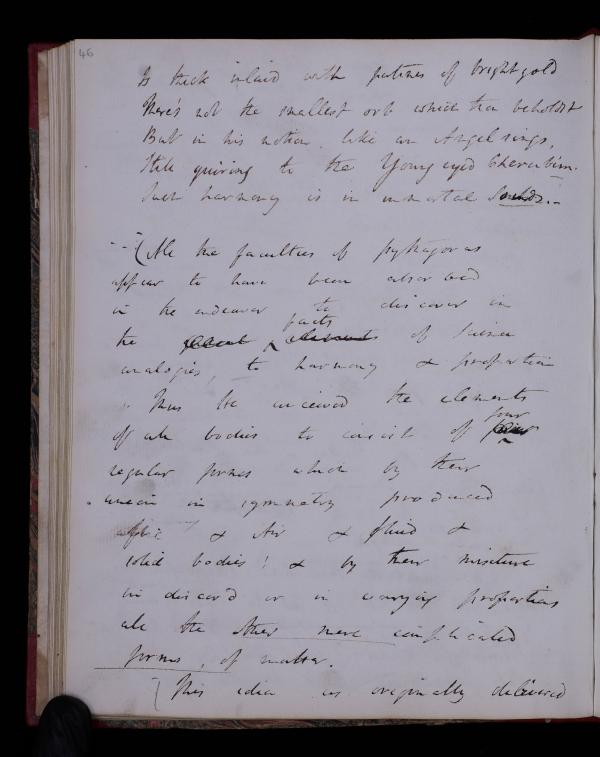 46
Is thick inlaid with patines of bright gold
There's not the smallest orb which thou beholdst
But in his motion, like an Angel sings,
Still quiring to the Young eyed Cherubim.
Such harmony is in immortal Souls.-
(All the faculties of pythagoras
appear to have been absorbed
in the endeavor to discover in
the facts of Science
analogies, to harmony & proportion
Thus He conceived the elements
of all bodies to consist of four
regular forms which by their
union in symmetry produced
& Air & fluid &
solid bodies! & by their mixture
in discord or in varying proportions
all the other more complicated
forms, of matter.
This idea as originally delivered